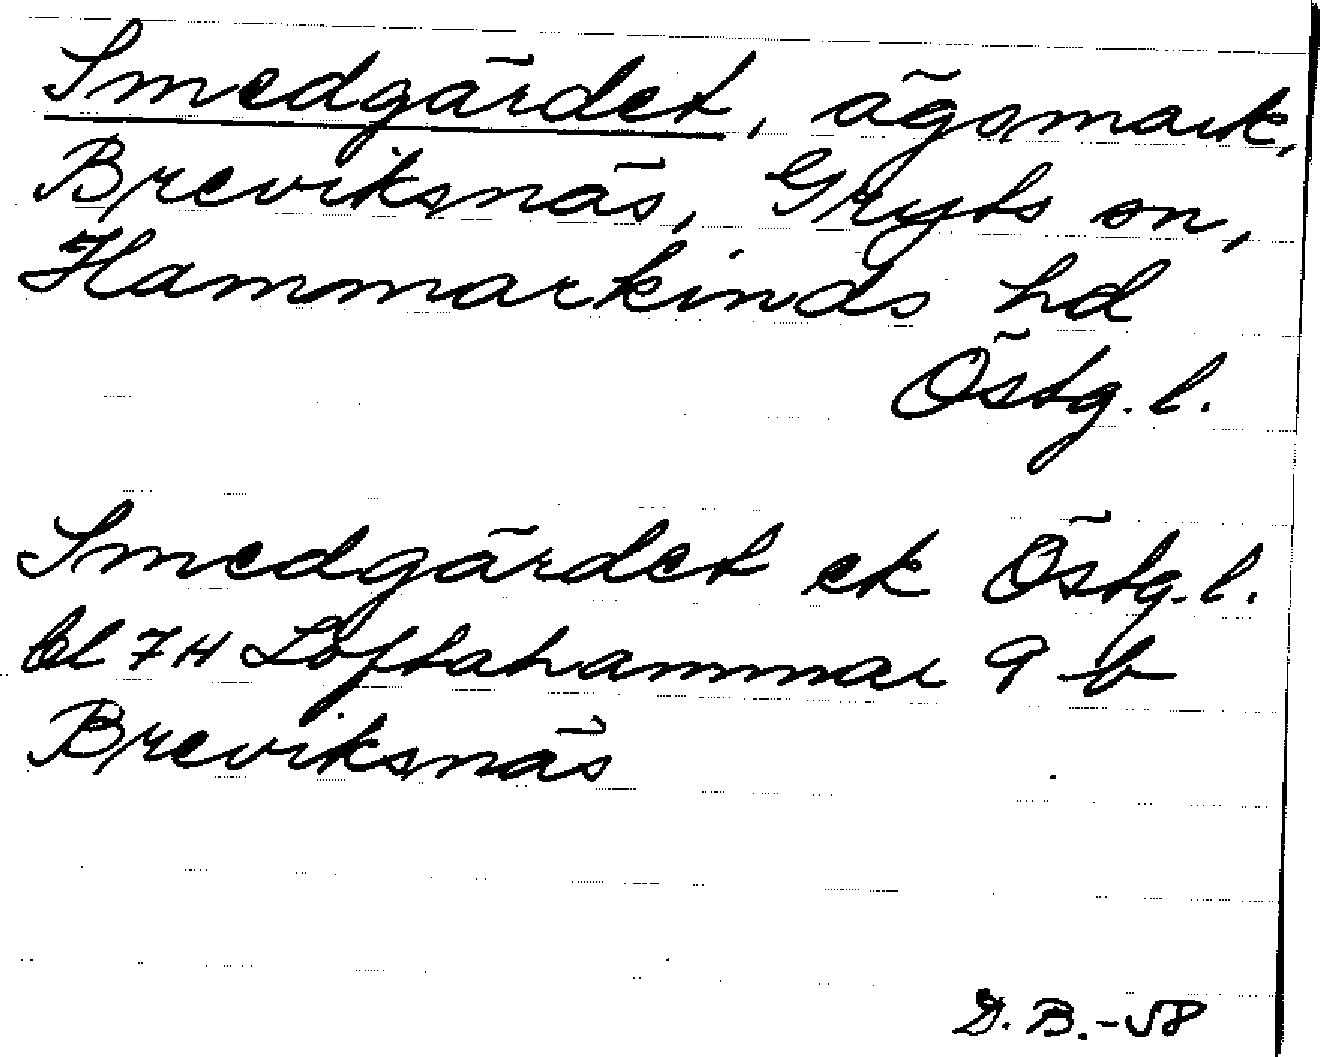 Smedgärdet, ägomark,
Breviksnäs, Gryts sn,
Hammarkinds hd
Östg. l.
Smedgärdet ek Östg. l.
bl 7H Loftahammar 9 b
Breviksnäs
D. B. -58